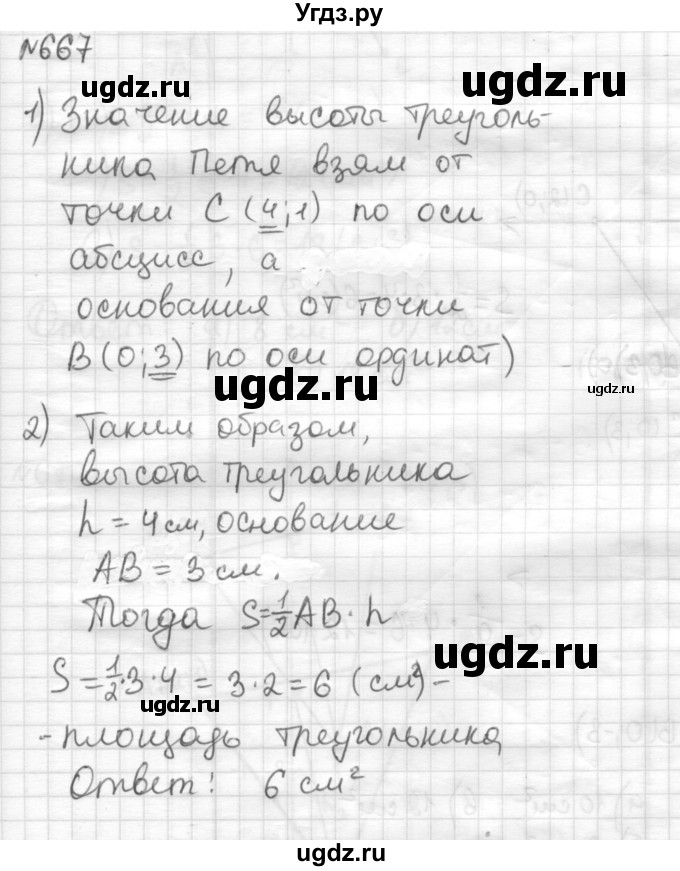 Угдз.ру
№667
ugdz.ru
1) Значение высоты треуголь-
ника Петя взям от
ugdz.ru
точки C (4;1) по оси
абсцисс, а
основания от точки
B (0;3) по оси ординат)
ugdz.ru
ugdz.ru
2) Таким образом,
ugdz.ru
высота треугольника
h = 4 см, основание
AB = 3 см.
ugdz.ru
Тогда S=1/2 AB · h
ugdz.ru
S = 1/2·3·4 = 3·2 = 6 (см²) -
ugdz.ru
- площадь треугольника
Ответ: 6 см²
ugdz.ru